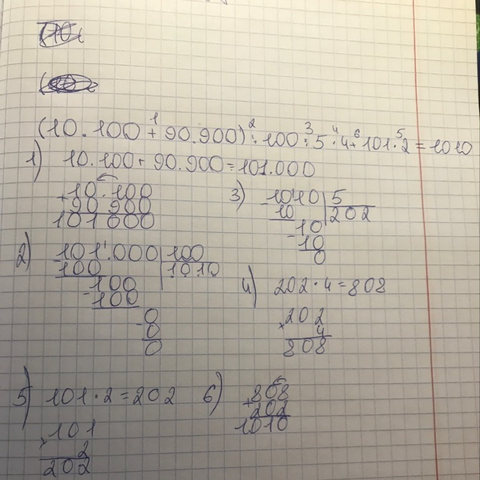 (10.100 + 90.900) : 100 : 5 · 4 + 101 · 2 = 1010
1) 10.100 + 90.900 = 101.000
+10.100
90 900
101 000
2) 101.000 | 100
100 | 1010
-100
100
-0
0
0
3) -1010 | 5
10 | 202
-10
10
0
4) 202 · 4 = 808
×202
4
808
5) 101 · 2 = 202
×101
2
202
6) +808
202
1010